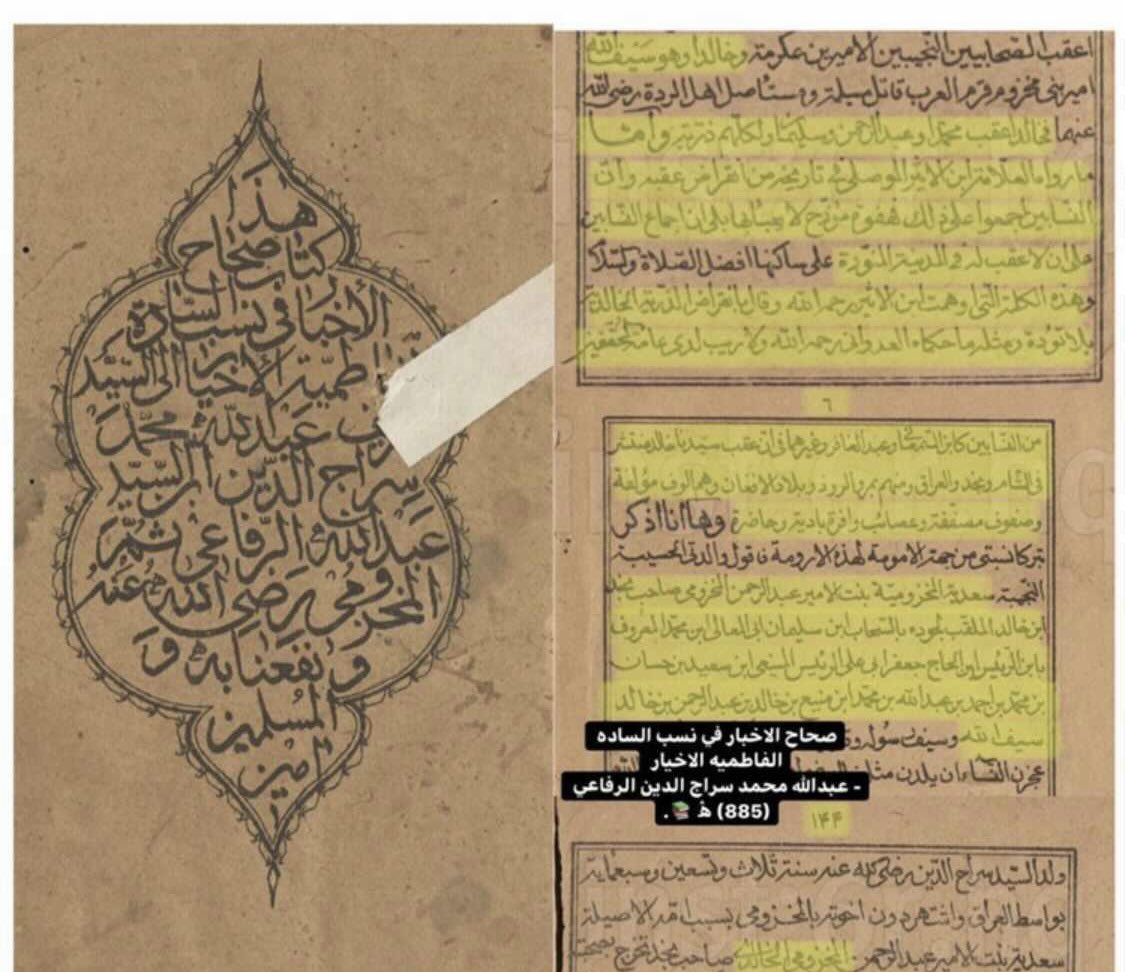 هذا
كتاب صحاح
الأخبار في نسب السادة
الفاطمية الأخيار الى السيد
عبدالله محمد
سراج الدين ابن السيد
عبدالله الرفاعي ثم
المخزومي رضي الله عنه
ونفعنا به و
المسلمين
امين
اعقب الصحابيين النجيبين الامير بن عكرمة وخالدا وهو سيف الله
امير بني مخزوم قرم العرب قاتل مسيلمة ومستأصل اهل الردة رضي الله
عنهما فخالد اعقب محمدا وعبد الرحمن وسليمان ولكلهم ذرية واما
ما رواه العلامة ابن الاثير الموصلي في تاريخه من انقراض عقبه وان
النسابين اجمعوا على ذلك فهفوة مؤرخ لا يعبأ بها بلى ان اجماع النسابين
على ان لا عقب له في المدينة المنورة على ساكنها افضل الصلاة والسلام
وهذه الكلمة التي اوهمت ابن الاثير رحمه الله وقال بانقراض الذرية الخالدية
بلا تؤدة ومثله ما حكاه العدواني رحمه الله ولا ريب لدى عامة المحققين
٦
من النسابين كابن السمعاني وعبد الغافر وغيرهما في ان عقب سيدنا خالد منتشر
في الشام ونجد والعراق ومنهم بمرو الروذ وبلاد الافغان وهم الوف مؤلفة
وصفوف مصففة وعصائب وافرة بادية وحاضرة وها انا اذكر
تبركا نسبتي من جهة الامومة لهذه الارومة فاقول والدتي الحسيبة
النجيبة سعدية المخزومية بنت الامير عبد الرحمن المخزومي صاحب نجد
ابن خالد الملقب لجوده بالسحاب ابن سليمان ابي المعالي ابن محمد المعروف
بابن الرئيس ابن الحاج جعفر ابي علي الرئيس المنيعي ابن سعيد بن حسان
بن محمد بن احمد بن عبد الله بن محمد ابن منيع بن خالد بن عبد الرحمن بن خالد
سيف الله وسيف رسوله
عجزن النساء ان يلدن مثل
صحاح الاخبار في نسب الساده
الفاطميه الاخيار
- عبدالله محمد سراج الدين الرفاعي
(885) هـ 📚.
١٤٤
ولد السيد سراج الدين رضي الله عنه سنة ثلاث وتسعين وسبعماية
بواسط العراق واشتهر دون اخوته بالمخزومي بسبب امه الاصيلة
سعدية بنت الامير عبد الرحمن المخزومي الخالدي صاحب نجد تخرج بصحبة